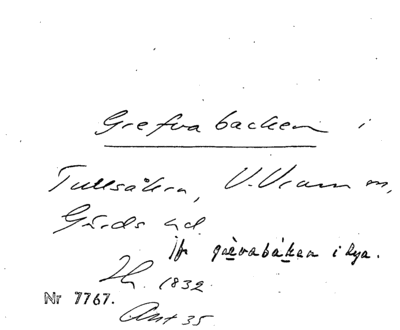 Grefva backen i
Tullsåkra, V. Vram sn,
Gärds hd.
jfr grèvabákan i bya.
Lh. 1832.
Nr 7767.
Ant 35